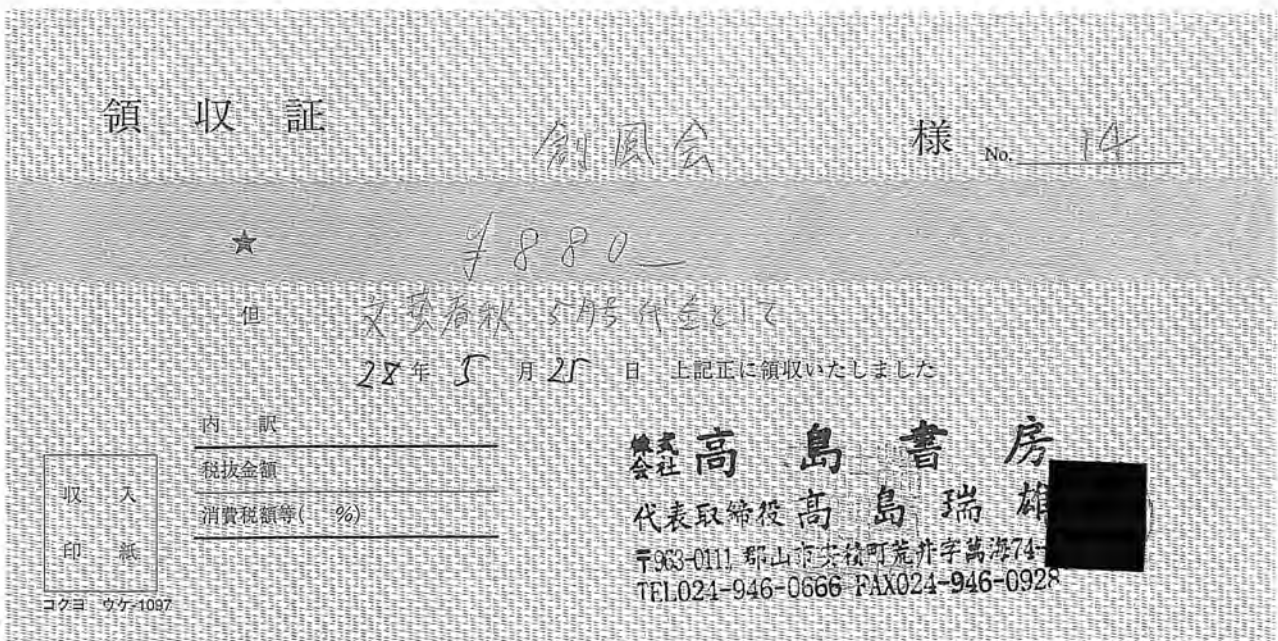 領収証 創風会 様 No. 14
★ ¥880—
但 文藝春秋 5月号代金として
28年 5月25日 上記正に領収いたしました
内訳
税抜金額
消費税額等( %)
収入
印紙
コクヨ ウケ-1097
株式会社 高島書房
代表取締役 高島瑞雄
〒963-0111 郡山市安積町荒井字萬海74-
TEL024-946-0666 FAX024-946-0928